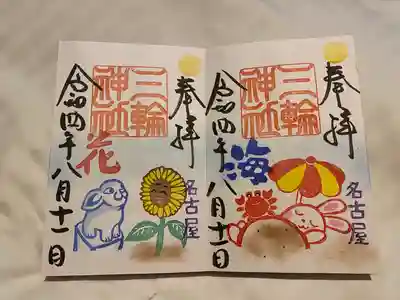 奉拝
三輪
神社
花
令和四年八月十一日
名古屋
奉拝
三輪
神社
海
令和四年八月十一日
名古屋